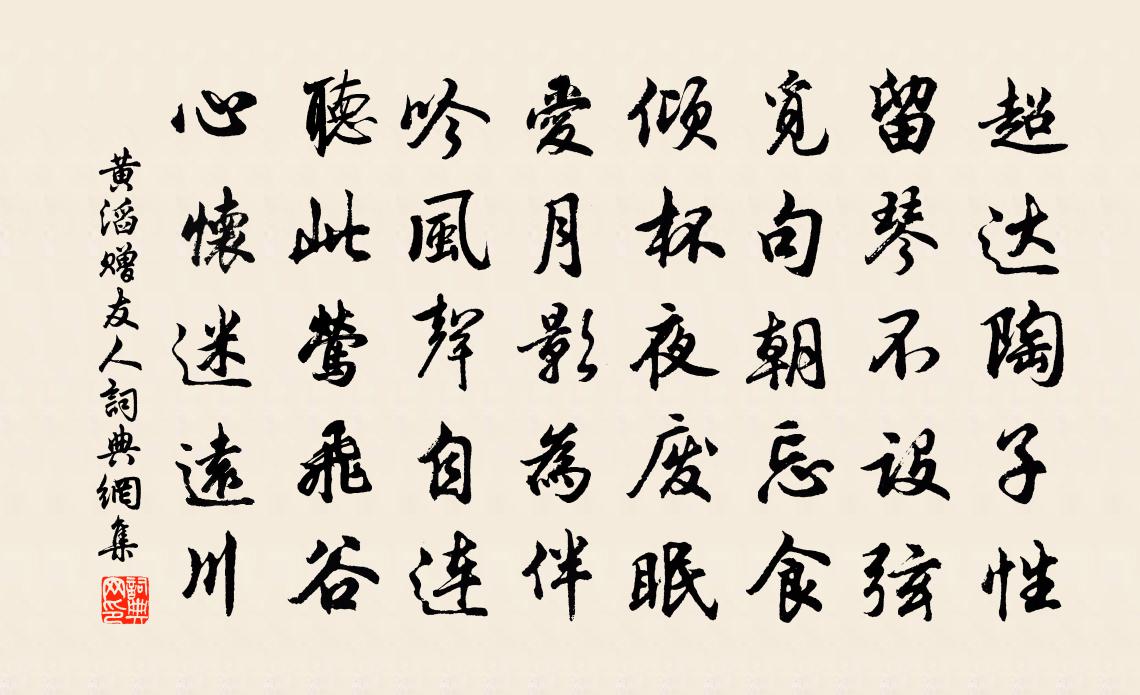 超达陶子性
留琴不设弦
觅句朝忘食
倾杯夜废眠
愛月影為伴
吟風聲自连
聽此鶯飛谷
心懷迷遠川
黄滔赠友人詞典網集
詞典网印